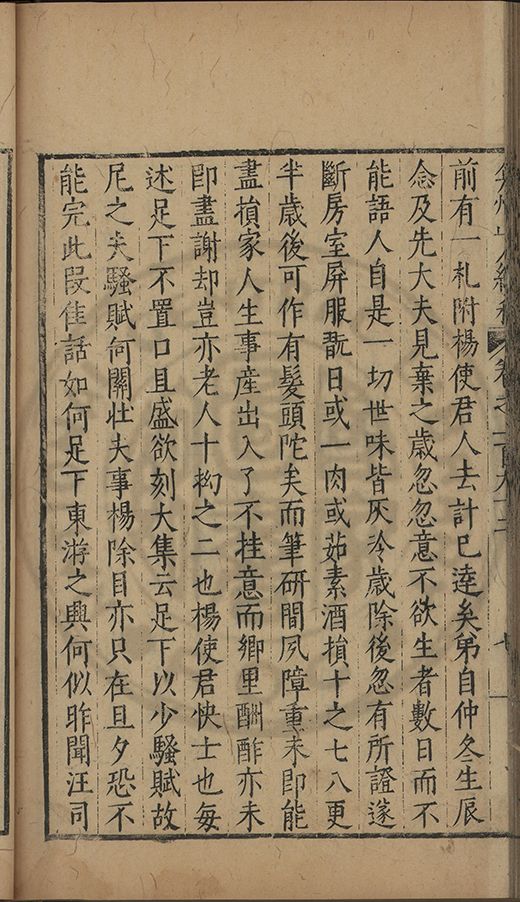 弇州山人續稿 卷之一百九十二 七
前有一札附楊使君人去計已達矣弟自仲冬生辰
念及先大夫見棄之歲忽忽意不欲生者數日而不
能語人自是一切世味皆灰冷歲除後忽有所證遂
斷房室屏服翫日或一肉或茹素酒損十之七八更
半歲後可作有髮頭陀矣而筆研間夙障重未即能
盡損家人生事產出入了不挂意而鄉里酬酢亦未
即盡謝却豈亦老人十拗之二也楊使君快士也每
述足下不置口且盛欲刻大集云足下以少騷賦故
尼之夫騷賦何關壯夫事楊除目亦只在旦夕恐不
能完此段佳話如何足下東游之興何似昨聞汪司